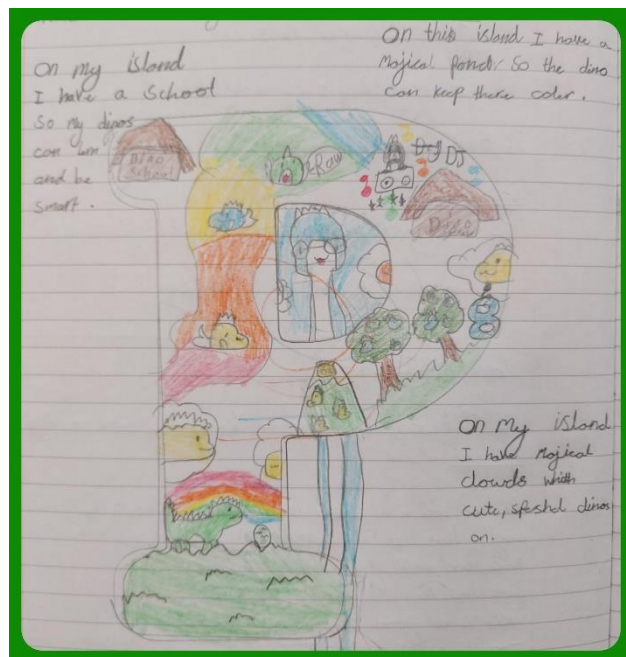 On my island
I have a School
So my dinos
can lern
and be
smart.
On this island I have a
Majical pond. So the dino
can keep there color.
Dino
School
Raw
DJ DJ
On My island
I have Majical
clowds whith
cute, speshd dinos
on.